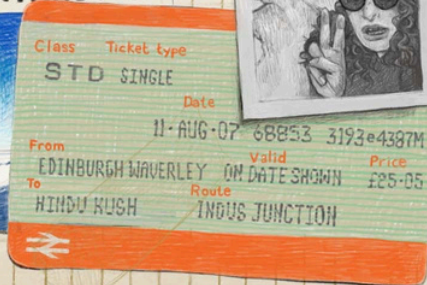 Class Ticket type
STD SINGLE
Date
11·AUG·07 68853 3193e4387M
From Valid Price
EDINBURGH WAVERLEY ON DATE SHOWN £25·05
To Route
HINDU KUSH INDUS JUNCTION